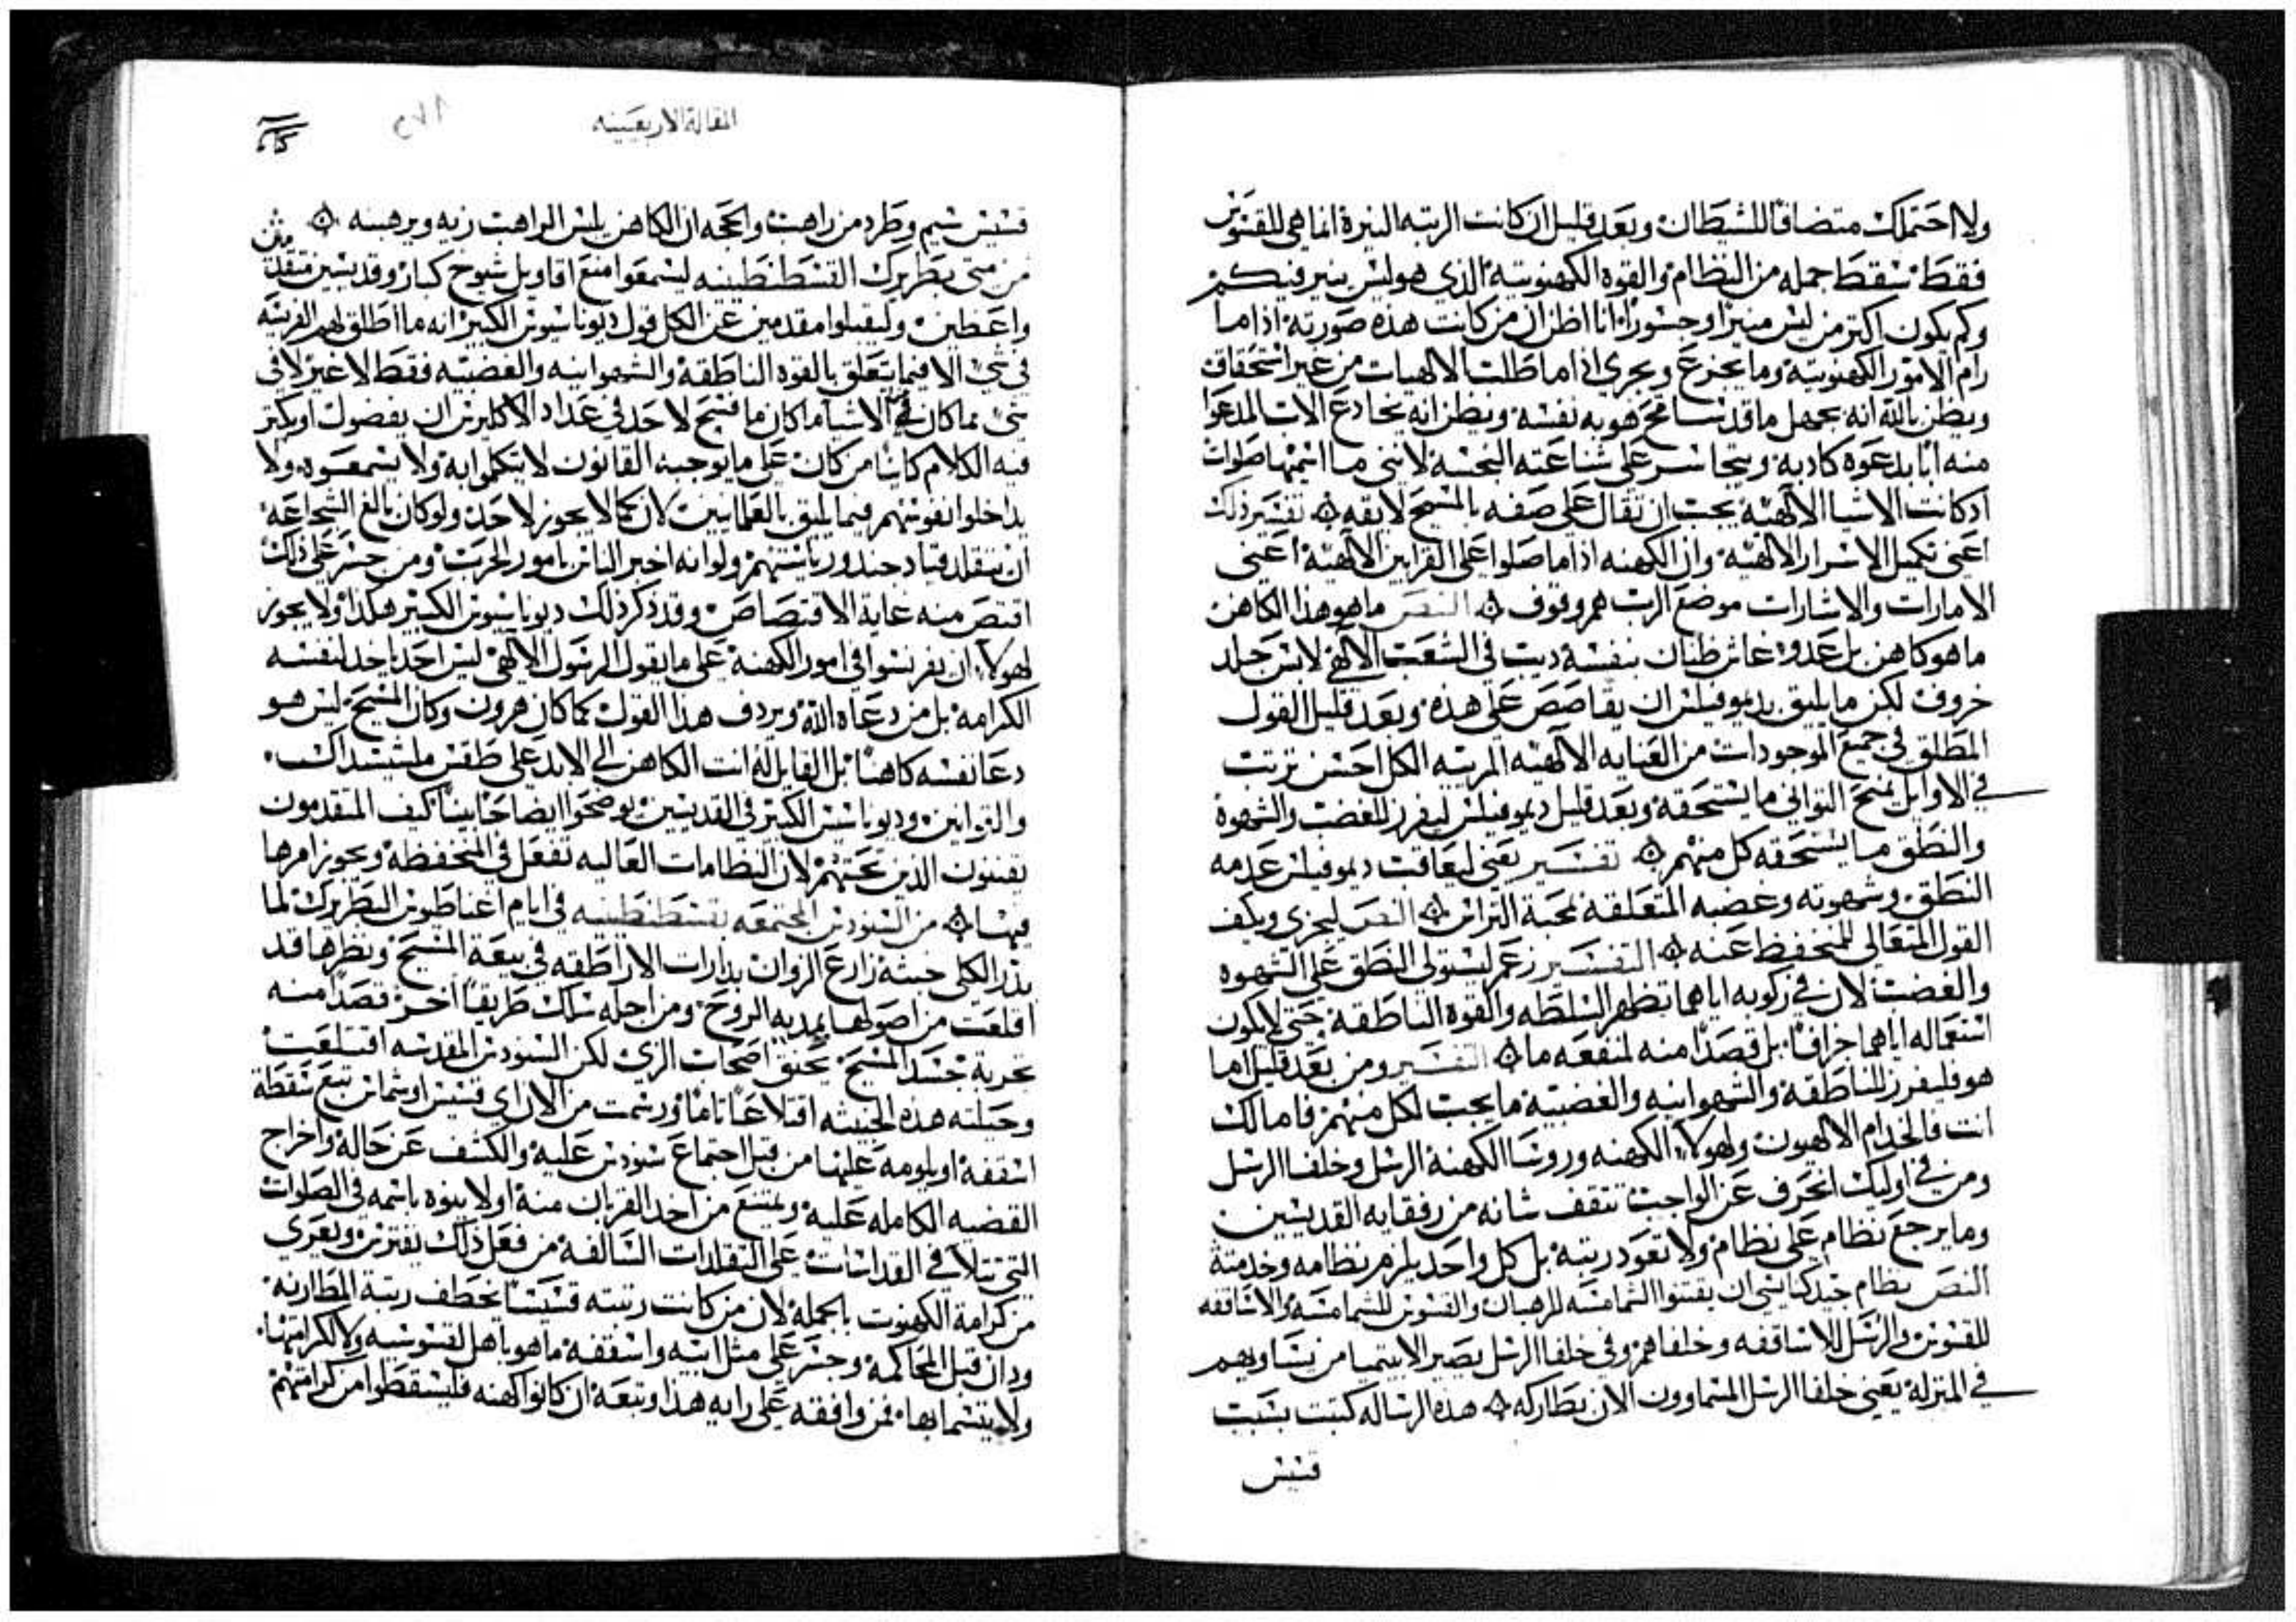 ولا احتملك متضافا للشيطان وبعد قليل ان كانت الرتبه المنيرة انما هي للقسوس
فقط سقط جمله من النظام والقوه الكهنوتيه الذي هو ليس ينير فيكم
وكم يكون اكتر من ليس منيرا وجسورا انا اظن ان من كانت هذه صورته اذا ما
رام الامور الكهنوتية وما يجزع ويجري اذا ما طلب الالهيات من غير استحقاق
ويظن بالله انه يجهل ما قد سامح هو به نفسه ويظن انه يخادع الاب المدعوا
منه ابا بدعوه كادبه ويتجاسر على شناعته النجسة لانني ما اسميها صلوات
اد كانت الاشيا الالهية يجب ان تقال على صفه بالمسيح لايقه تفسير ذلك
اعني تكميل الاسرار الالهية وان الكهنه اذا ما صلوا على القرابين الالهية اعني
الامارات والاشارات موضع الرب هم وقوف النص ما هو هذا الكاهن
ما هو كاهن بل عدو غاش طنان بنفسه ديب في الشعب الالهي لابس جلد
خروف لكن ما يليق بديموفيلس ان يقاصص على هذه وبعد قليل القول
المطلق في جميع الموجودات من العنايه الالهيه المرتبه الكل احسن ترتيب
في الاوايل تمنح التواني ما يستحقه وبعد قليل ديموفيلس ليفرز للغضب والشهوة
والنطق ما يستحقه كل منهم تفسير يعني ليعاقب ديموفيلس عدمه
النطق وشهوته وغضبه المتعلقه بمحبة التراس النص ليجزى ويكف
القول المتعالى للمنخفظ عنه التفسير زعم ليستولي النطق على الشهوه
والغضب لان في ركوبه اياهما تظهر السلطه والقوه الناطقة حتى لا يكون
استعماله اياهما جزافا بل قصدا منه لمنفعه ما التفسير ومن بعد قليل اما
هو فليفرز للناطقة والشهوانيه والغضبية ما يجب لكل منهم فاما لك
انت فالخدام الالهيون ولهولا الكهنه وروسا الكهنة الرسل وخلفا الرسل
ومن في اوليك انحرف عن الواجب تتقف شانه من رفقايه القديسين
وما يرجع نظام على نظام ولا تعود رتبة بل كل واحد يلزم نظامه وخدمتة
النص نظام جيد كنايسي ان يقتنوا الشمامسه للرهبان والقسوس للشمامسه والاساقفه
للقسوس والرسل للاساقفه وخلفاهم وفي خلفا الرسل يصير الايتميا من يساويهم
في المنزلة يعني خلفا الرسل المسماوون الان بطاركه هذه الرساله كتبت بسبب
قسيس
المقالة الاربعينه
قسيس شيم وطرد من راهب والحجه ان الكاهن يلبس الراهب زيه ويرهبنه
من متى بطريرك القسطنطينيه ليسمعوا منع اقاويل شيوخ كبار وقديسين متقدمين
واعظين وليقبلوا مقدمين عن الكل قول ديوناسيوس الكبير انه ما اطلق لهم الفريسة
في شي الا فيما يتعلق بالقوه الناطقة والشهوانيه والغضبيه فقط لا غير لا في
شي مما كان في الاشيا ما كان ما فسح لاحد في عداد الاكليرس ان يفضول او يكتر
فيه الكلام كاينا من كان على ما يوجبه القانون لا يتكلموا به ولا يسمعوه ولا
يداخلوا نفوسهم فيما يليق بالعلمانيين لان كما لا يجوز لاحد ولو كان بالغ الشجاعه
ان يتقلد قياد جند ورياستهم ولو انه اخبر الناس بامور الحرب ومن جسر على ذلك
اقتص منه غاية الاقتصاص وقد ذكر ذلك ديوناسيوس الكبير هكذا ولا يجوز
لهولا ان يفرنسوا في امور الكهنة على ما يقول الرسول الالهي ليس احد ياخد لنفسه
الكرامة بل من دعاه الله ويردف هذا القول كما كان هرون وكان المسيح ليس هو
دعا نفسه كاهنا بل القايل له انت الكاهن الى الابد على طقس ملشيسداك
والقوانين وديوناسيس الكبير في القديسين يوضحوا ايضاحا بينا كيف المتقدمون
يقننون الذين تحتهم لان النظامات العاليه تفعل في المنخفظة ويجوز امرها
فيها من السنودس المجتمعه بقسطنطينيه في ايام اغناطيوس البطريرك لما
بذر الكلي خبثه زارع الزوان بدارات الاراطقه في بيعة المسيح ونظرها قد
اقلعت من اصولها بمديه الروح ومن اجله سلك طريقا اخر قصدا منه
تجزية جسد المسيح بحنق اصحاب الزي لكن السنودس المقدسه اقتلعت
وحيلته هذه الخبيثه اقتلاعا تاما ورسمت من الان اي قسيس او شماس تبع سقطة
اسقفة او يلومه عليها من قبل اجتماع سنودس عليه والكشف عن حاله واخراج
القضيه الكامله عليه ويمتنع من اخد القربان منة او لا ينوه باسمه في الصلوات
التي تتلا في القداسات على التقلدات السالفة من فعل ذلك يفترس ويعرى
من كرامة الكهنوت بالجملة لان من كانت رتبته قسيسا يخطف رتبة المطارنه
ودان قبل المحاكمة وجسر على مثل ابيه واسقفه ما هو باهل لقسوسيه ولا لكرامتها
ولا يتسما بها فمن وافقه على رايه هذا وتبعه ان كانوا كهنه فليسقطوا من كرامتهم